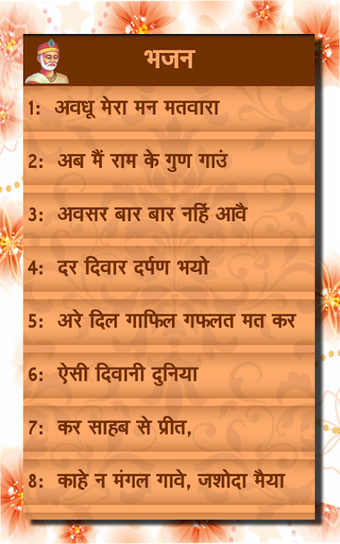 भजन
1: अवधू मेरा मन मतवारा
2: अब मैं राम के गुण गाउं
3: अवसर बार बार नहिं आवै
4: दर दिवार दर्पण भयो
5: अरे दिल गाफिल गफलत मत कर
6: ऐसी दिवानी दुनिया
7: कर साहब से प्रीत,
8: काहे न मंगल गावे, जशोदा मैया